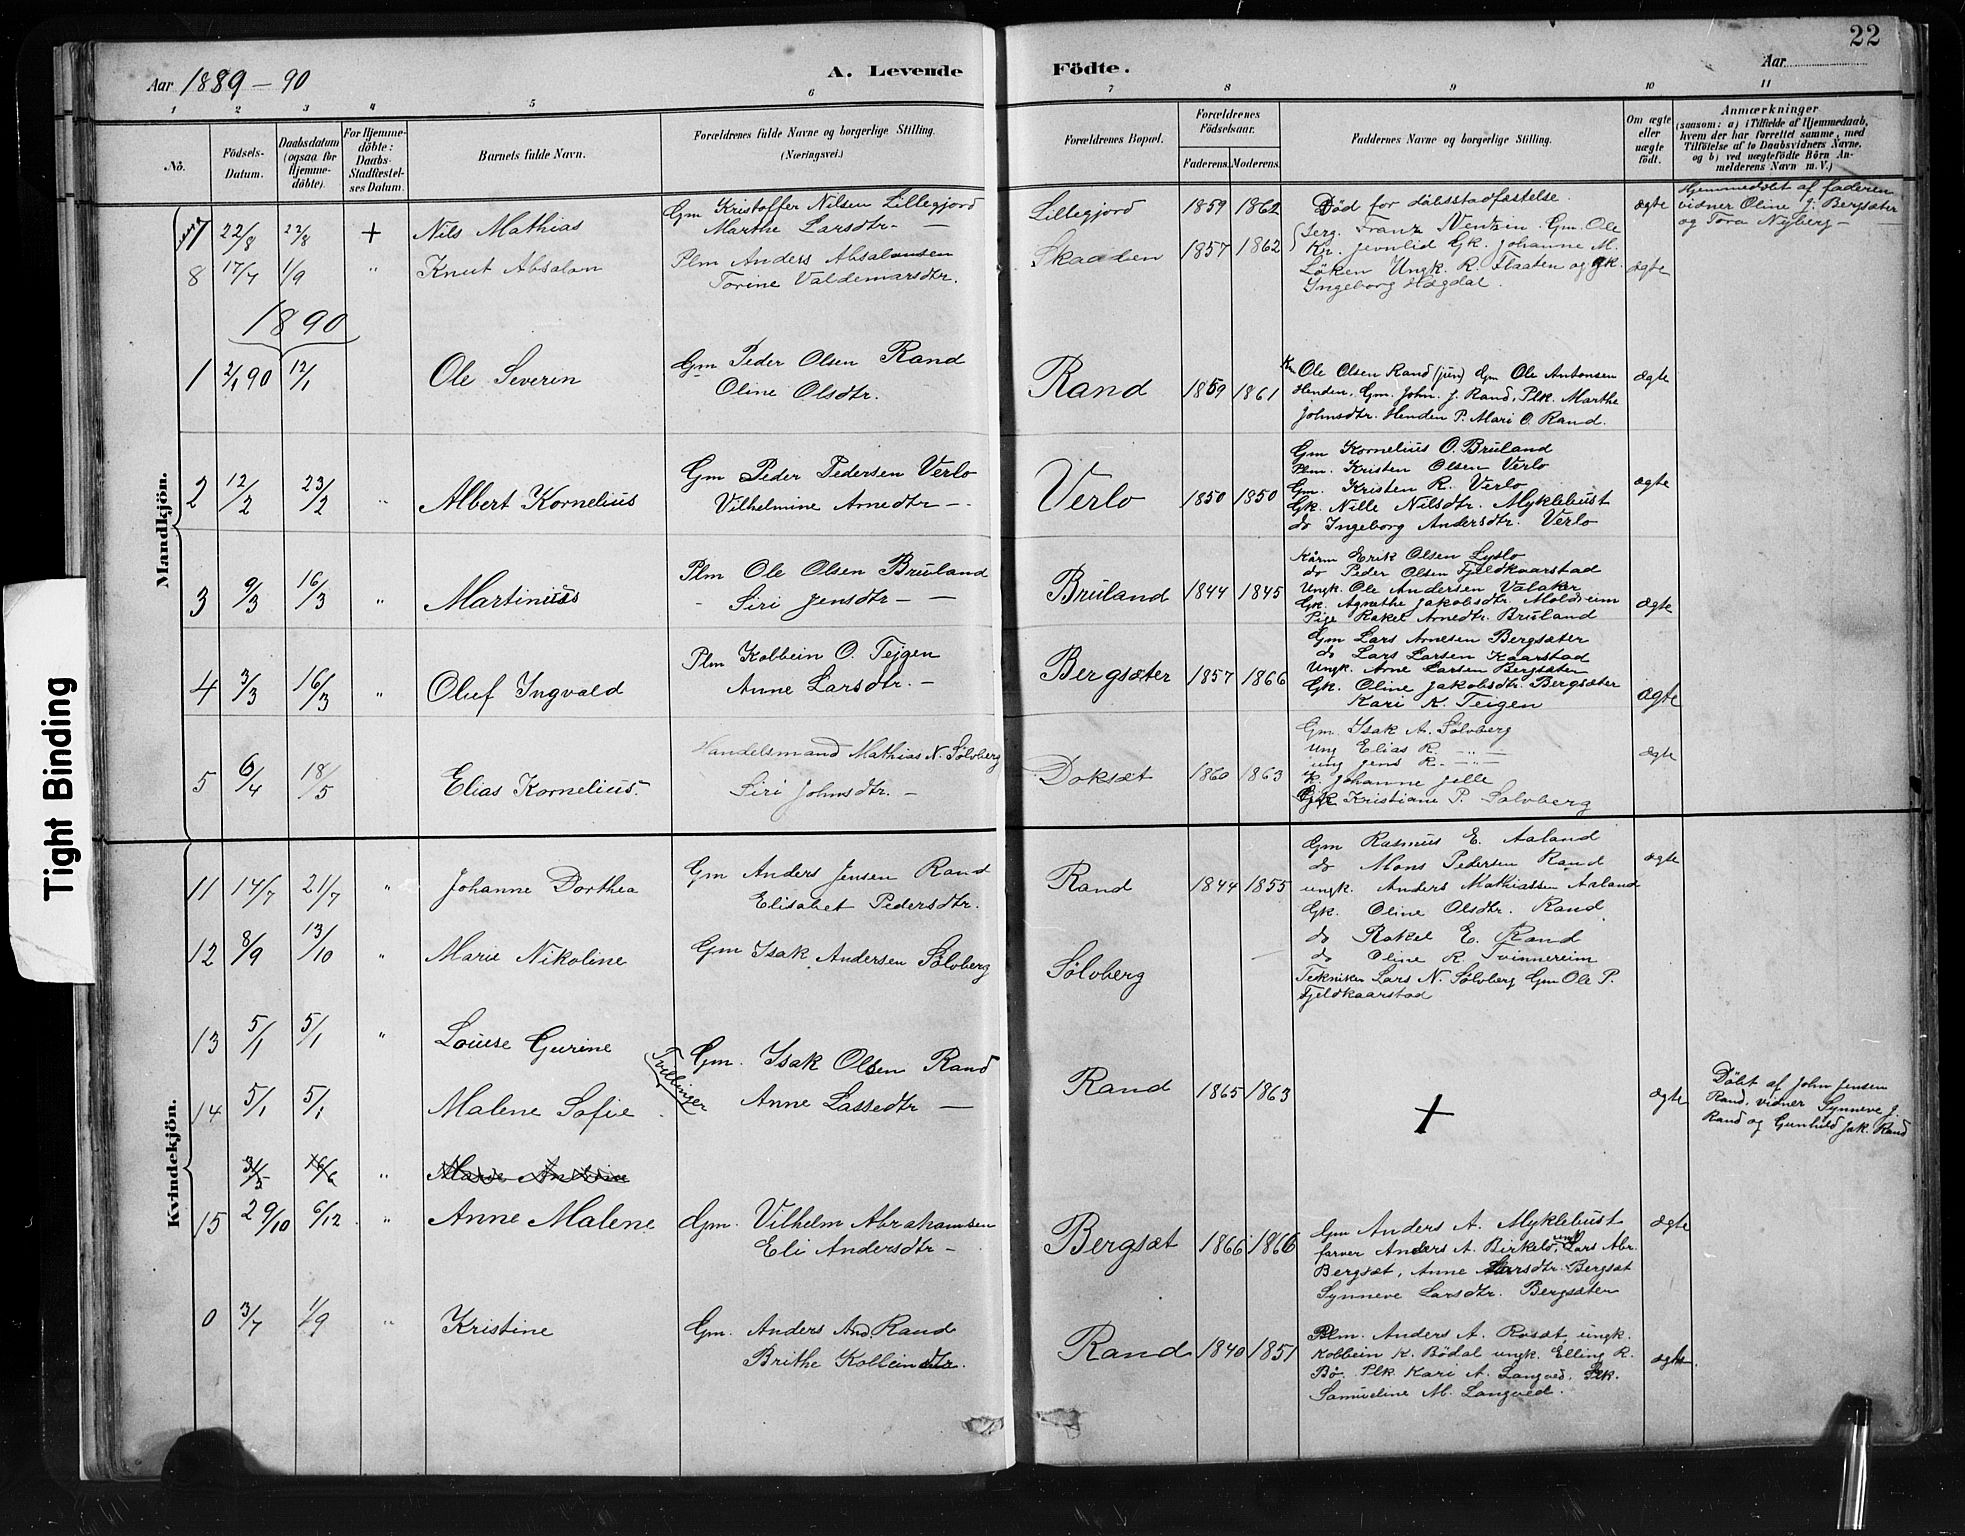 22
Aar 1889-90
A. Levende Födte.
Aar
1 2 3 4 5 6 7 8 9 10 11
No.
Födsels-Datum.
Daabsdatum (ogsaa for Hjemme-döbte)
For Hjemme-döbte: Daabs-Stadfæstel-ses Datum.
Barnets fulde Navn.
Forældrenes fulde Navne og borgerlige Stilling. (Næringsvei.)
Forældrenes Bopæl.
Forældrenes Födselsaar.
Faderens. Moderens.
Faddernes Navne og borgerlige Stilling.
Om ægte eller uægte födt.
Anmærkninger (saasom: a) i Tilfælde af Hjemmedaab, hvem der har forrettet samme, med Tilföielse af to Daabsvidners Navne, og b) ved uægtefödte Börn Anmelderens Navn m. V.)
Mandkjön.
7 22/8 22/8 + Nils Mathias
Gm Kristoffer Nilsen Lillegjord
Marthe Larsdtr. —
Lillegjord 1859 1862
Död for dåbsstadfæstelse.
ægte
Hjemmedöbt af faderen
vidner Oline J. Bergsæter
og Tora Nyberg —
8 17/7 1/9 " Knut Absalon
Plm Anders Absalonsen
Torine Valdemarsdtr.
Skaaden 1857 1862
Serg. Franz Ventzin. Gm. Ole
Kr. Jevnlid Gk. Johanne M.
Löken Ungk. R. Flaaten og gk.
Ingeborg Hægdal.
ægte
1890
1 2/1 90 12/1 Ole Severin
Gm Peder Olsen Rand
Oline Olsdtr.
Rand 1859 1861
Km Ole Olsen Rand (jun) Gm Ole Antonsen
Henden, Gm. John. J. Rand, Plk. Marthe
Johnsdtr. Henden P. Mari O. Rand.
ægte
2 12/2 23/2 " Albert Kornelius
Gm Peder Pedersen Verlo
Vilhelmine Arnedtr —
Verlo 1850 1850
Gm Kornelius O. Bruland
Plm. Kristen Olsen Verlo
Gm. Kristen R. Verlo
Gk. Nille Nilsdtr. Myklebust
do Ingeborg Andersdtr. Verlo
ægte
3 9/3 16/3 " Martinus
Plm Ole Olsen Bruland
Siri Jensdtr — —
Bruland 1844 1845
Kårm Erik Olsen Lyslo
do Peder Olsen Fjeldkaarstad
Ungk. Ole Andersen Valaker
Gk. Agnethe Jakobsdtr. Moldreim
Pige Rakel Arnedtr. Bruland
ægte
4 3/3 16/3 " Oluf Ingvald
Plm Kolbein O. Tejgen
Anne Larsdtr. —
Bergsæter 1857 1866
Gm Lars Arnesen Bergsæter
do Lars Larsen Kaarstad
Ungk. Arne Larsen Bergsæten
Gk. Oline Jakobsdtr. Bergsæter
Kari K. Teigen
ægte
5 6/4 18/5 Elias Kornelius.
Handelsmand Mathias N. Sölvberg
Siri Johnsdtr. —
Doksæt 1860 1863
Gm. Isak A. Sölvberg
ung Elias R. — " —
ung Jens R. — " —
K. Johanne Jelle
Gk Kristiane P. Sölvberg
ægte
Kvindekjön.
11 14/7 21/7 " Johanne Dorthea
Gm Anders Jensen Rand
Elisabet Pedersdtr.
Rand 1844 1855
Gm Rasmus E. Aaland
do Mons Pedersen Rand
ungk. Anders Mathiassen Aaland
Gk. Oline Olsdtr. Rand
do Rakel E. Rand
ægte
12 8/9 13/10 " Marie Nikoline
Gm Isak Andersen Sölvberg
Sölvberg
do Oline R. Tvinnereim
Tekniker Lars N. Sölvberg Gm Ole P.
Fjeldkaarstad
13 5/1 5/1 " Louise Gurine
Tvillinger
Gm. Isak Olsen Rand
14 5/1 5/1 Malene Sofie
Anne Lassedtr —
Rand 1865 1863
+
ægte
Döbt af John Jensen
Rand, vidner Synneve J.
Rand og Gunhild Jak. Rand
31/5 16/6 "
15 29/10 6/12 " Anne Malene
Gm. Vilhelm Abrahamsen
Eli Andersdtr —
Bergsæt 1866 1866
Gm Anders A. Myklebust
farver Anders A. Birkelo, ungk Lars Abr.
Bergsæt, Anne Larsdtr. Bergsæt
Synneve Larsdtr. Bergsæten
ægte
0 3/7 1/9 " Kristine
Gm. Anders And. Rand
Brithe Kolbeindtr.
Rand 1840 1851
Plm. Anders A. Rosæt, ungk.
Kolbein K. Bödal ungk. Elling R.
Bö. Plk Kari A. Langved, Plk.
Samueline M. Langved.
ægte.
Tight Binding